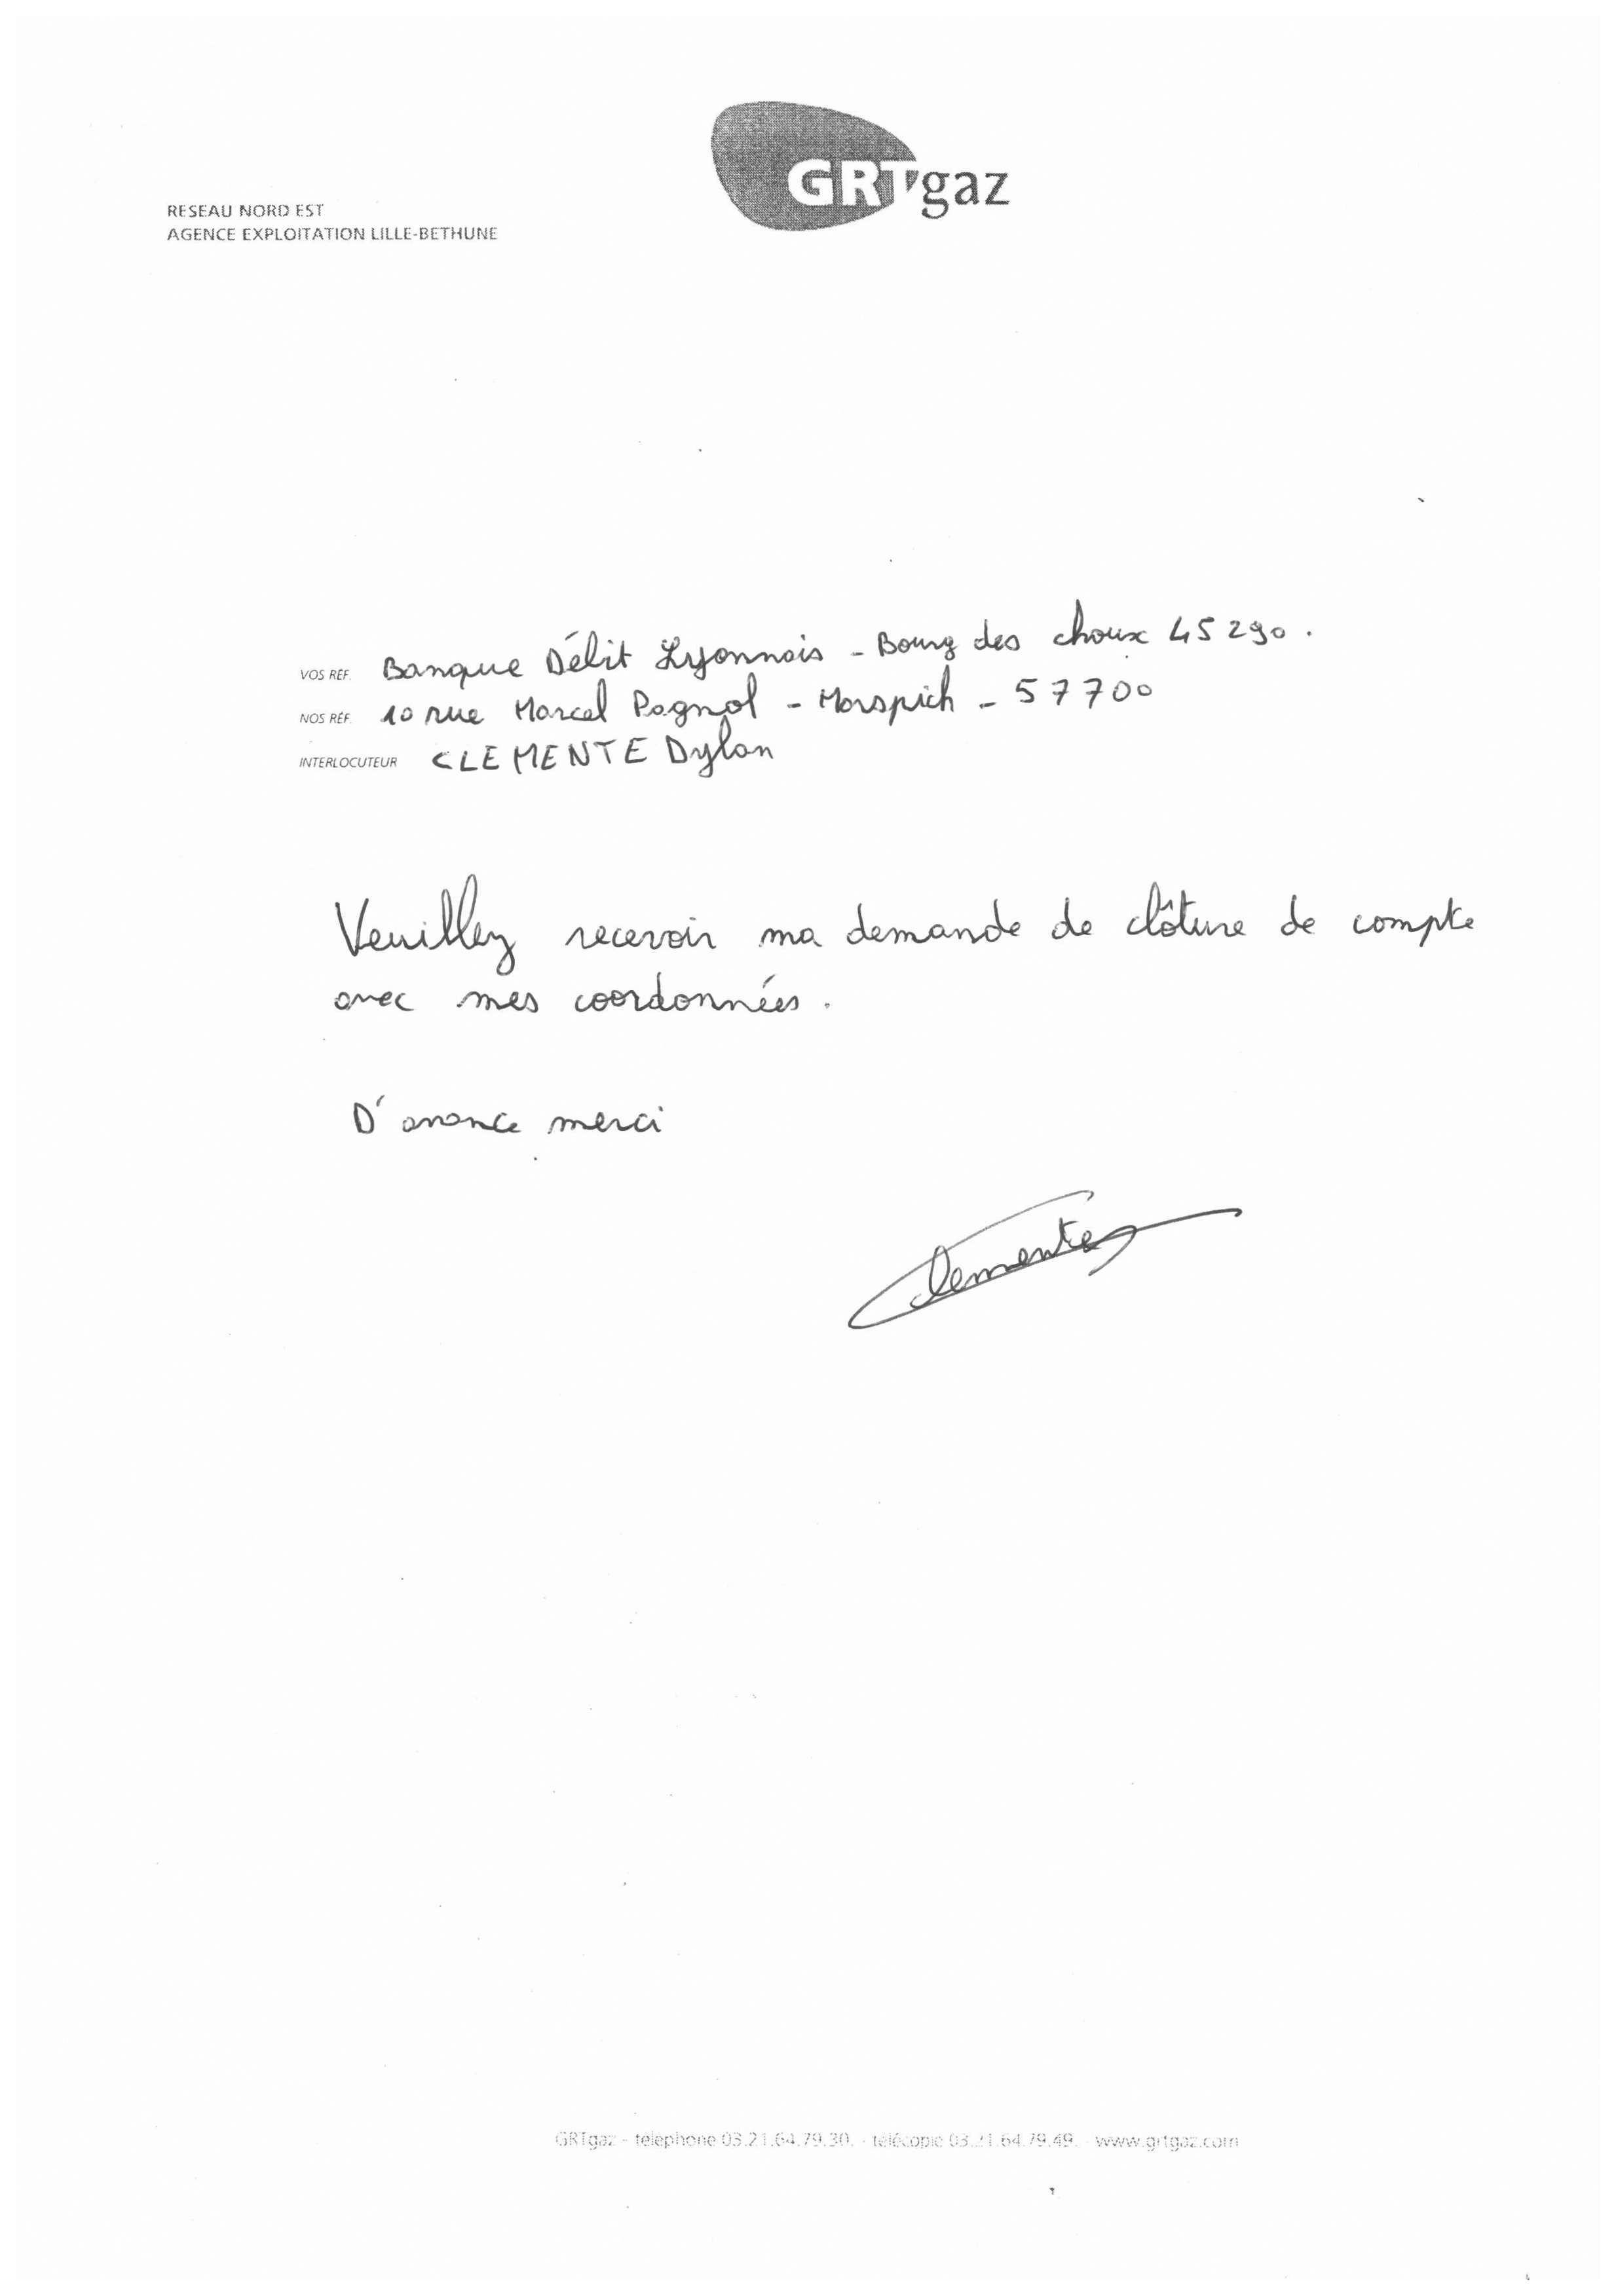 GRTgaz
RESEAU NORD EST
AGENCE EXPLOITATION LILLE-BETHUNE
VOS RÉF. Banque Délit Lyonnais - Bourg des choux 45290.
NOS RÉF. 10 rue Marcel Pagnol - Morspich - 57700
INTERLOCUTEUR CLEMENTE Dylan
Veuillez recevoir ma demande de clôture de compte
avec mes coordonnées.
D'avance merci
Clemente
GRTgaz - telephone 03.21.64.79.30. - télécopie 03.21.64.79.49. - www.grtgaz.com